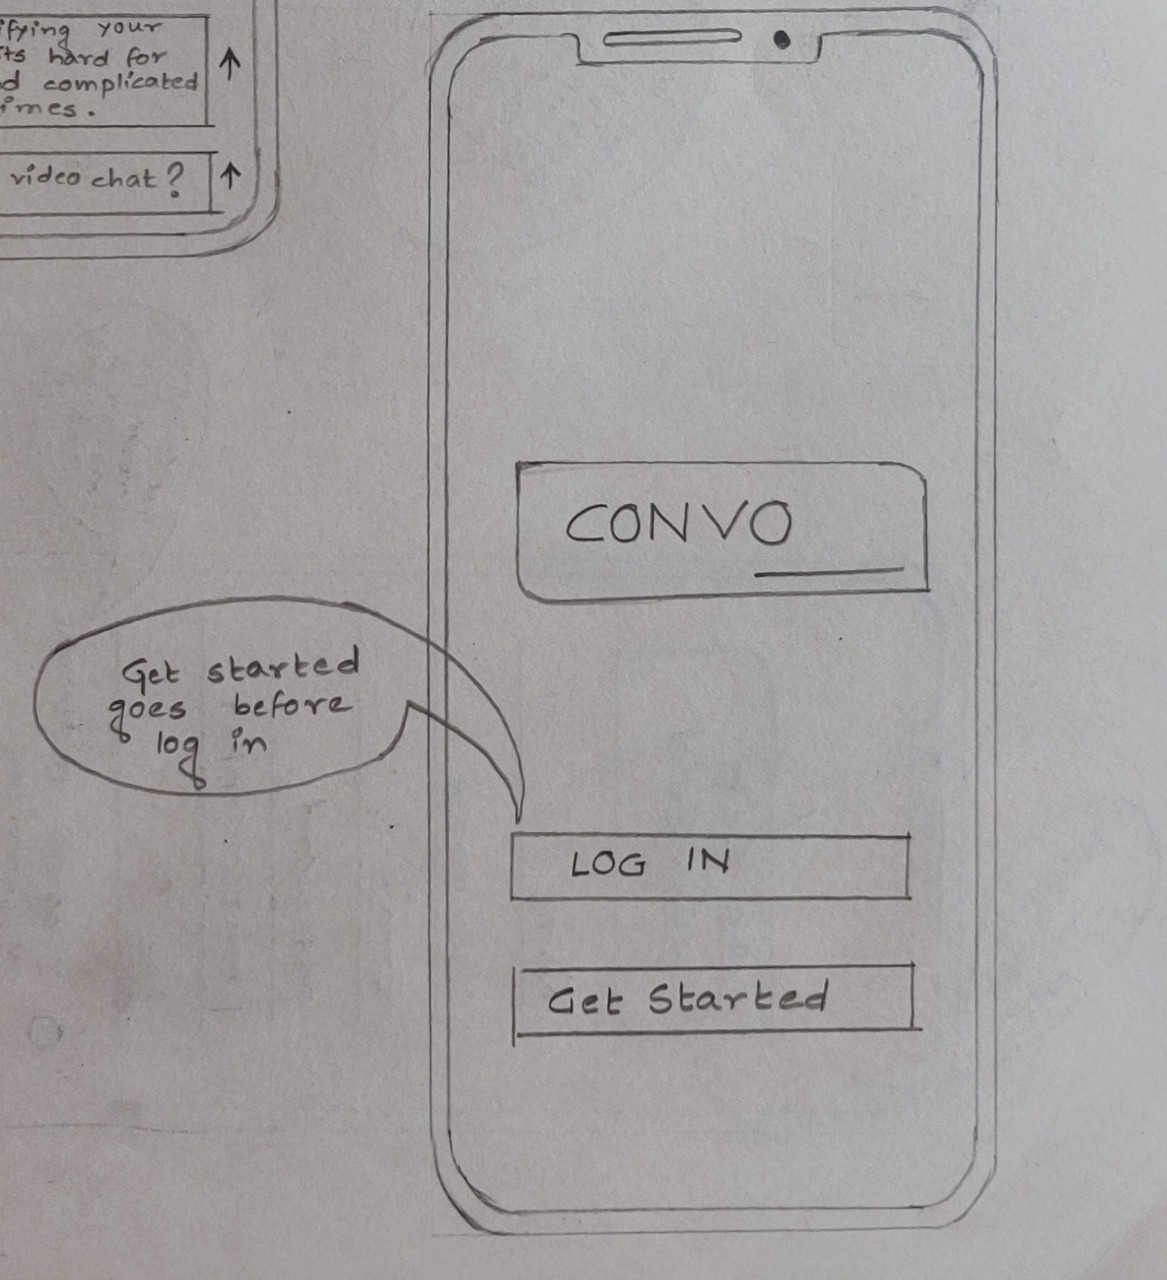 your
hard for
complicated
video chat?
CONVO
Get started
goes before
log in
LOG IN
Get Started